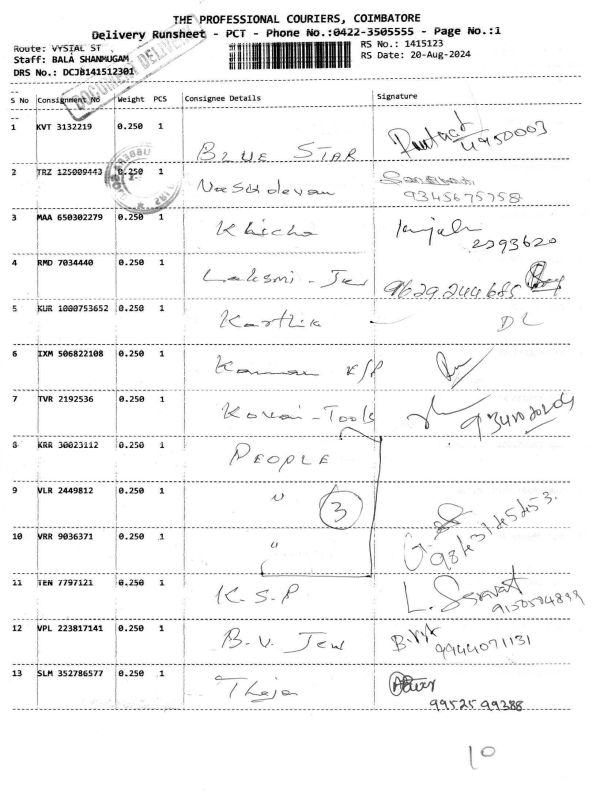 THE PROFESSIONAL COURIERS, COIMBATORE
Delivery Runsheet - PCT - Phone No.:0422-3505555 - Page No.:1
Route: VYSIAL ST
RS No.: 1415123
Staff: BALA SHANMUGAM
RS Date: 20-Aug-2024
DRS No.: DCJB141512301
DOCUMENT DELIVERY
S No Consignment No Weight PCS Consignee Details Signature
1 KVT 3132219 0.250 1 BLUE STAR
2 TRZ 125009443 0.250 1 Vasudevan 9345675758
3 MAA 650302279 0.250 1 2293620
4 RMD 7034440 0.250 1 Laksmi - Jew 9629244685
5 KUR 1000753652 0.250 1 Karthik DL
6 IXM 506822108 0.250 1 Kannan
7 TVR 2192536 0.250 1 Kovai - Tools
8 KRR 30023112 0.250 1 PEOPLE
9 VLR 2449812 0.250 1 " 3
10 VRR 9036371 0.250 1 "
11 TEN 7797121 0.250 1 K.S.P L.
12 VPL 223817141 0.250 1 B.V. Jew 9944071131
13 SLM 352786577 0.250 1 Theja 9952599388
10